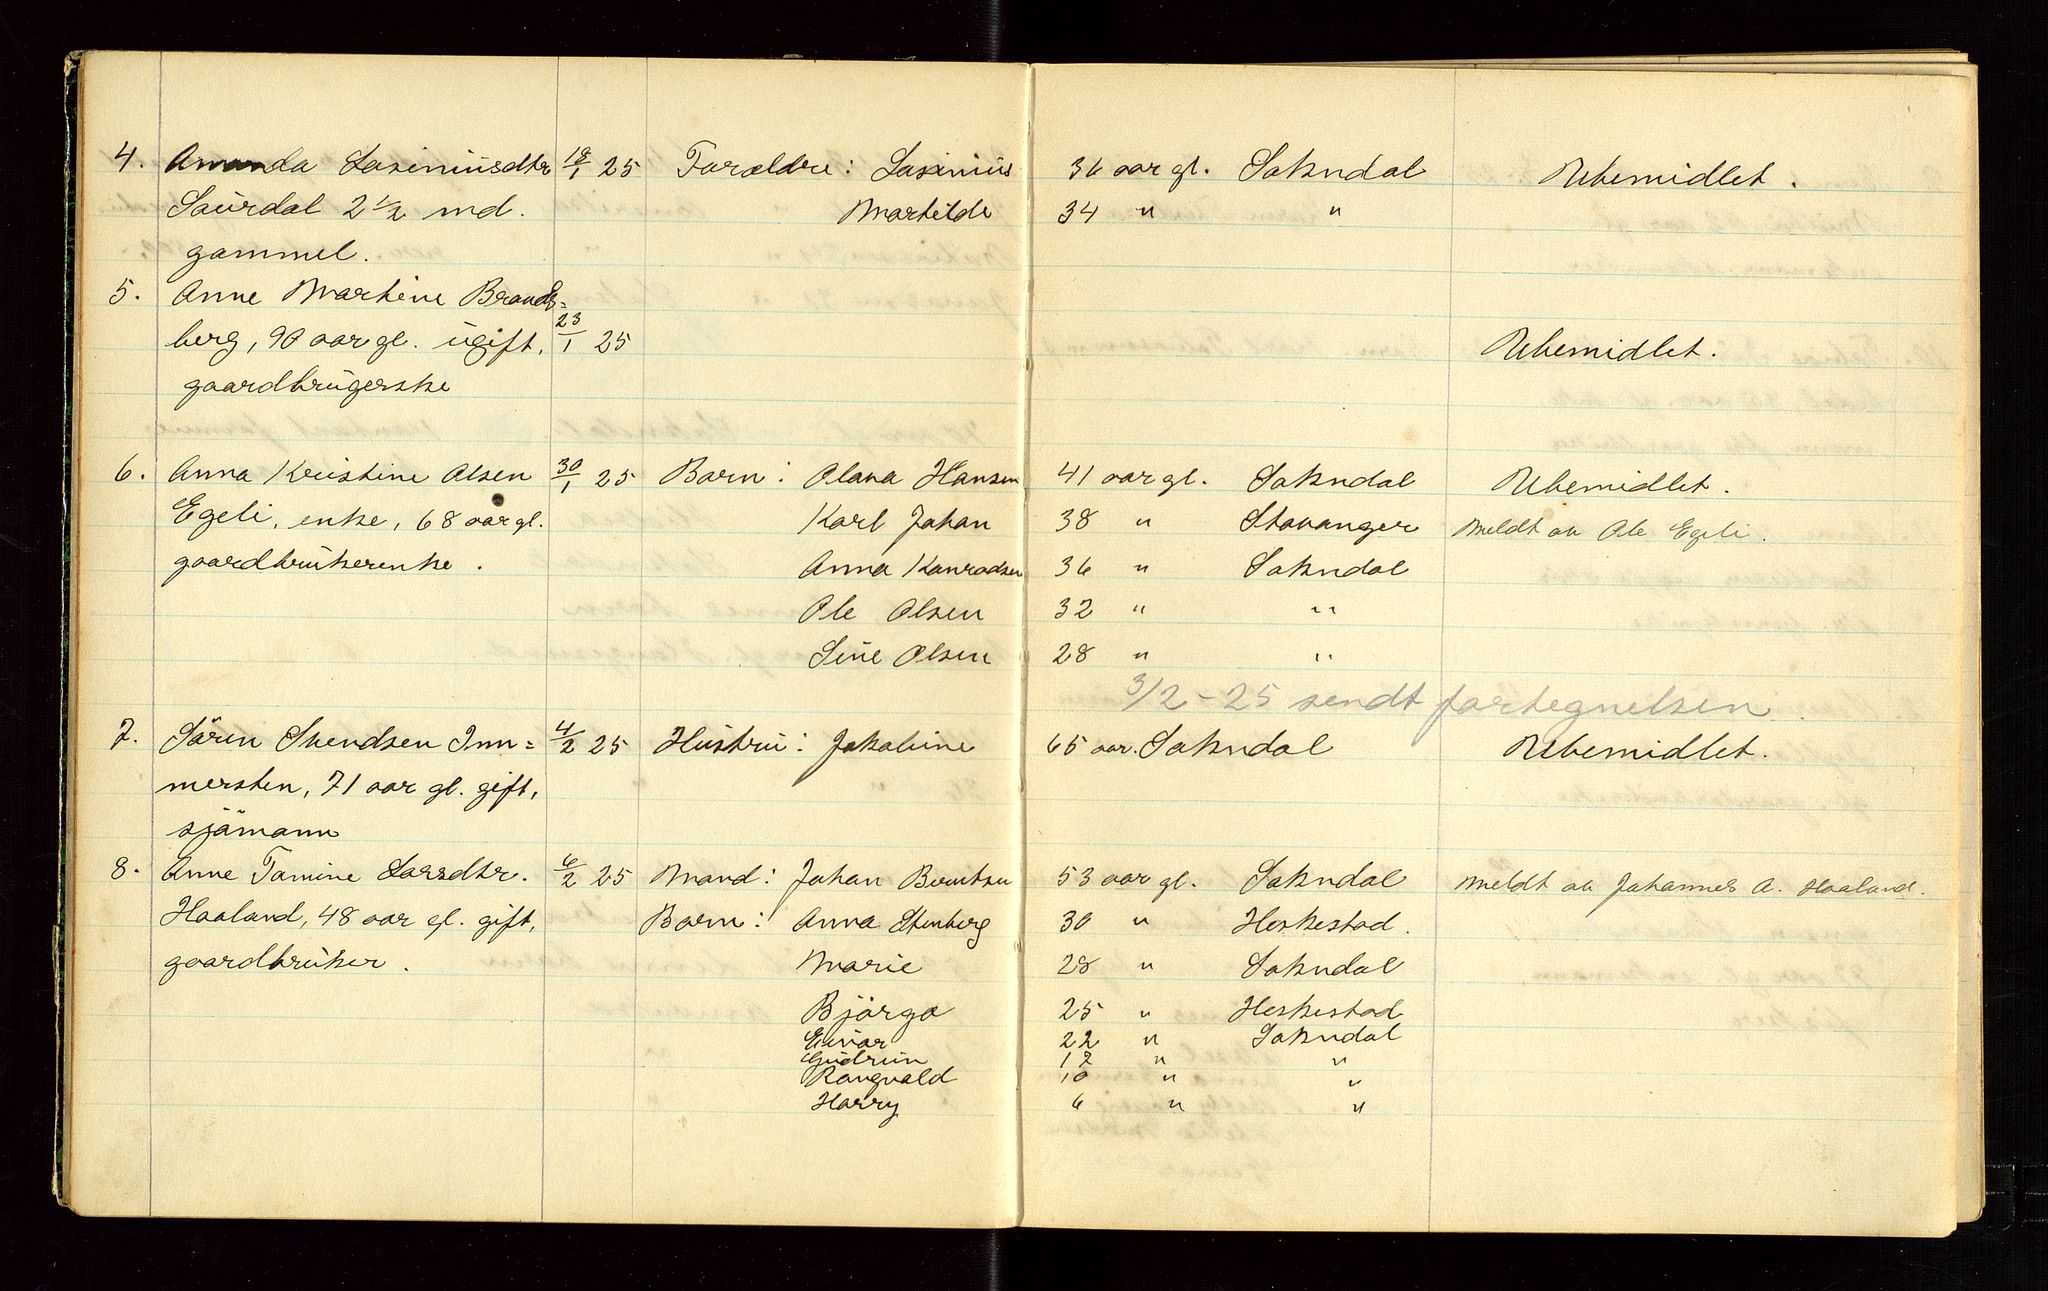 4. Amanda Lasiniusdtr 18/1 25 Forældre: Lasinius 36 aar gl. Sokndal Ubemidlet.
Saurdal 2 1/2 md. Martilde 34 " "
gammel.
5. Anne Martine Brands=
berg, 90 aar gl. ugift, 23/1 25 Ubemidlet.
gaardbrugerske
6. Anna Kristine Olsen 30/1 25 Barn: Olava Hansen 41 aar gl. Sokndal Ubemidlet.
Egeli, enke, 68 aar gl. Karl Johan 38 " Stavanger Meldt av Ole Egeli.
gaardbrukerenke. Anna Konradsen 36 " Sokndal
Ole Olsen 32 " "
Sine Olsen 28 " "
3/2-25 sendt fortegnelsen.
7. Sören Svendsen Imm= 4/2 25 Hustru: Jakobine 65 aar. Sokndal Ubemidlet.
mersten, 71 aar gl. gift,
sjömann
8. Anne Tomine Larsdtr. 6/2 25 Mand: Johan Berntsen 53 aar gl. Sokndal Meldt av Johannes A. Haaland.
Haaland, 48 aar gl. gift, Barn: Anna Stenberg 30 " Heskestad.
gaardbruker. Marie 28 " Sokndal
Bjorga 25 " Heskestad
Einar 22 " Sokndal
Gudrun 12 " "
Rangvald 10 " "
Harry 6 " "